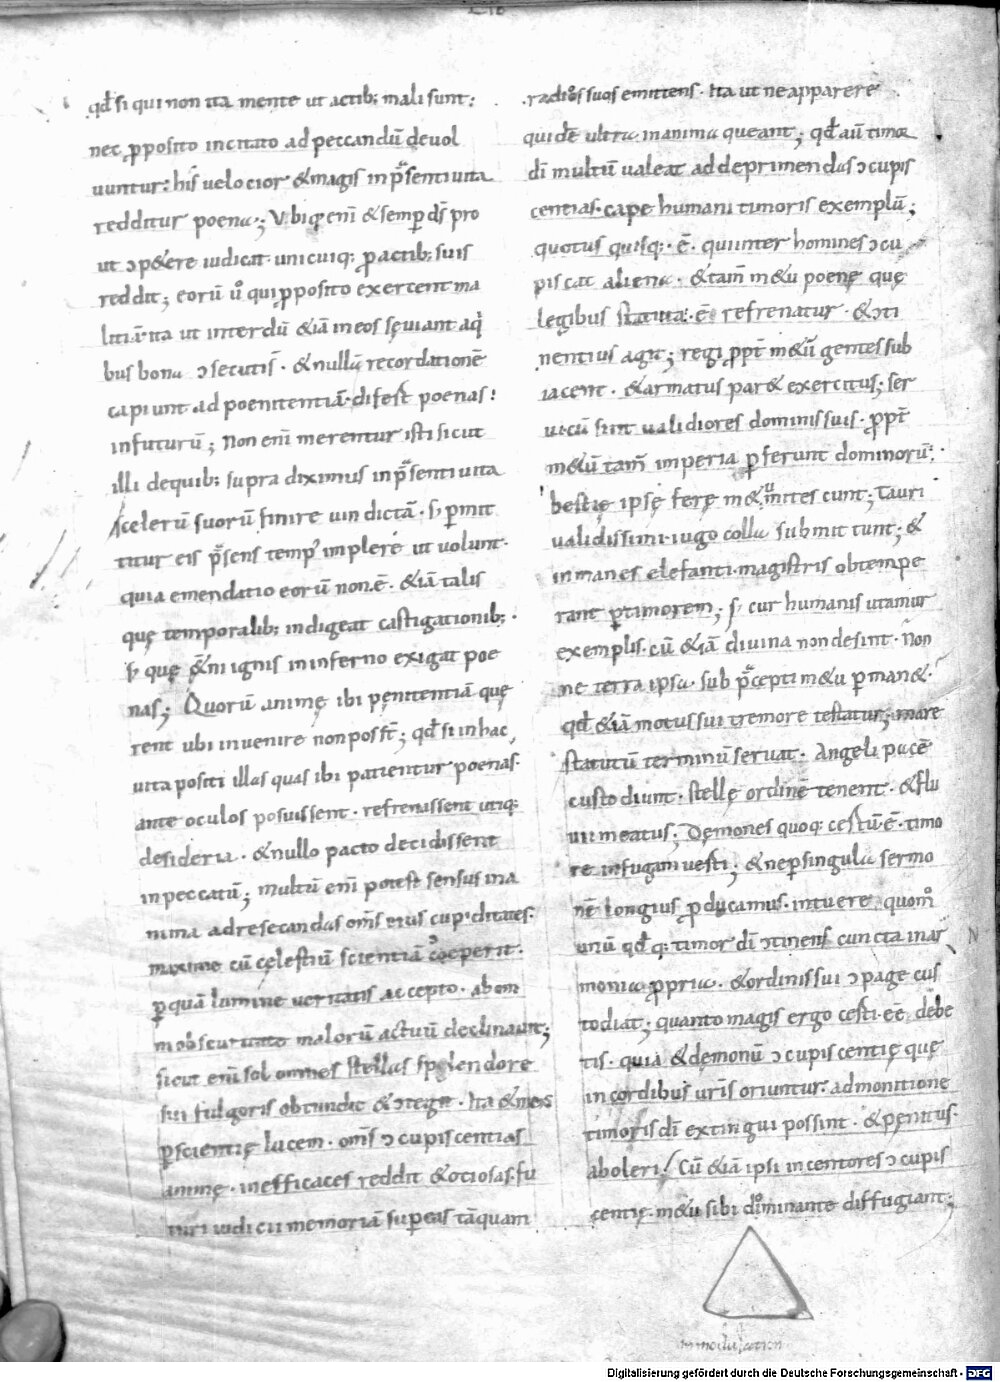 qđ si qui non ita mente ut actib; mali sunt;
nec ꝓposito incitato ad peccandū devol
uuntur; his velocior & magis in p̄senti vita
redditur poena; Vbiq; enī & semꝑ ds̄ pro
ut ɔpetere iudicat unicuiq; ꝓ actib; suis
reddit; eorū ū qui ꝓposito exercent ma
litiā ita ut interdū &iā in eos sęviant a qi
bus bona ɔsecuti s̄ · & nullā recordationē
capiunt ad poenitentiā · differt poenas
in futurū; Non enī merentur isti sicut
illi de quib; supra diximus in p̄senti vita
scelerū suorū finire vindictā · s; ꝑmit
titur eis p̄sens temp' implere ut volunt ·
quia emendatio eorū non ē · &iā talis
quę temporalib; indigeat castigationib; ·
s; quę &ni ignis in inferno exigat poe
nas; Quorū animę ibi pęnitentiā quę
rent ubi invenire non posst̄; qđ si in hac
vita positi illas quas ibi patientur poenas
ante oculos posuissent · refrenassent utiq;
desideria · & nullo pacto decidissent
in peccatū; multū enī potest sensus in a
nima ad resecandas om̄s eius cupiditates ·
maxime cū cęlestiū scientiā coeperit ·
ꝑ quā lumine veritatis accepto · ab om
ni obscuritate malorū actuū declinavit;
sicut enī sol omnes stellas splendore
sui fulgoris obtundit & ɔtegit · Ita & mens
ꝑ scientię lucem · om̄s ɔcupiscentias
animę · inefficaces reddit & otiosas · fu
turi iudicii memoriā super eas tāquam
radios suos emittens · Ita ut ne apparere
quidē ultra in anima queant; qđ aū timor
dī multū valeat ad deprimendas ɔcupis
centias · cape humani timoris exemplū;
quotus quisq; · ē · qui inter homines ɔcu
piscat aliena · & tam̄ metu poenę quę
legibus statuta · ē · refrenatur · & ɔti
nentius agit; regi ꝓpt̄ metū gentes sub
iacent · & armatus paret exercitus; ser
ui cū sint validiores dominis suis · ꝓpt̄
metū tam̄ imperia ꝑferunt dominorū ·
bestię ipsę ferę metu mitescunt; Tauri
validissimi iugo colla submittunt; &
inmanes elefanti magistris obtempe
rant ꝑ timorem; s; cur humanis utamur
exemplis · cū &iā divina non desint · Non
ne terra ipsa sub p̄cepti metu ꝑmanet ·
qđ &iā motus sui tremore testatur; mare
statutū terminū servat · Angeli pacē
custodiunt · stellę ordinē tenent · & flu
vii meatus; Dęmones quoq; certū ē · timo
re in fugam vesti; & ne ꝑ singula sermo
nē longius ꝓducamus · intuere, quom̊
unū qđq; timor dī ɔtinens cuncta in ar
monia ꝓpria · & ordinis sui ɔpage cus
todiat; quanto magis ergo certi ee̅ debe
tis · quia & dęmonū ɔcupiscentię quę
in cordibus vrīs oriuntur admonitione
timoris dī extingui possint · & pęnitus
aboleri! Cū &iā ipsi incentores ɔcupis
centię · metu sibi dominante diffugiant;